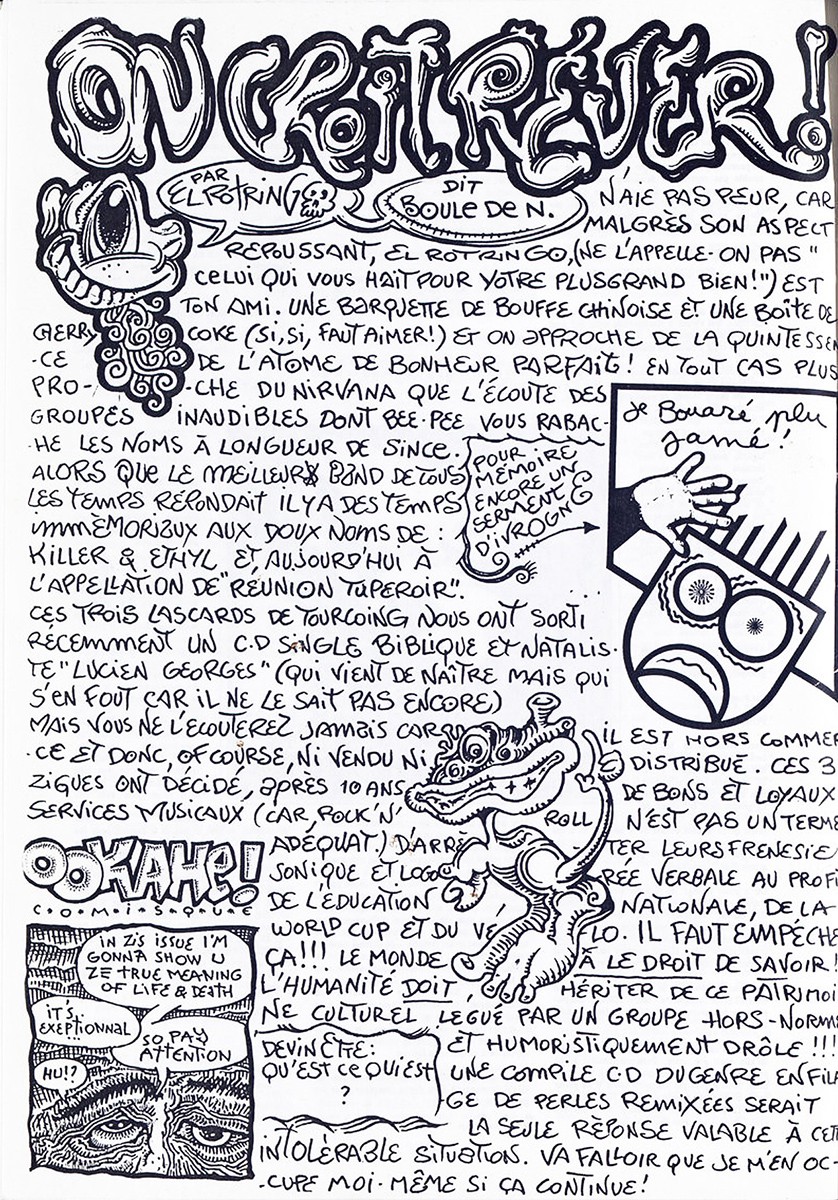 ON CROIT RÊVER!
PAR
EL ROTRINGO
DIT
BOULE DE N.
N'AIE PAS PEUR, CAR
MALGRÈS SON ASPECT
REPOUSSANT, EL ROTRINGO, (NE L'APPELLE-ON PAS "
CELUI QUI VOUS HAIT POUR VOTRE PLUS GRAND BIEN!") EST
TON AMI. UNE BARQUETTE DE BOUFFE CHINOISE ET UNE BOÎTE DE
CHERRY COKE (SI, SI, FAUT AIMER!) ET ON APPROCHE DE LA QUINTESSEN
-CE DE L'ATOME DE BONHEUR PARFAIT! EN TOUT CAS PLUS
PRO- -CHE DU NIRVANA QUE L'ÉCOUTE DES
GROUPES INAUDIBLES DONT BEE-PEE VOUS RABAC-
-HE LES NOMS À LONGUEUR DE SINCE.
ALORS QUE LE MEILLEUR BAND DE TOUS
LES TEMPS RÉPONDAIT IL Y A DES TEMPS
IMMÉMORIAUX AUX DOUX NOMS DE :
KILLER & ETHYL ET, AUJOURD'HUI À
L'APPELLATION DE "REUNION TUPEROIR".
POUR
MÉMOIRE
ENCORE UN
SERMENT
D'IVROGNE
Je Bouaré plu
jamé!
CES TROIS LASCARDS DE TOURCOING NOUS ONT SORTI
RÉCEMMENT UN C.D SINGLE BIBLIQUE ET NATALIS-
TE "LUCIEN GEORGES" (QUI VIENT DE NAÎTRE MAIS QUI
S'EN FOUT CAR IL NE LE SAIT PAS ENCORE)
MAIS VOUS NE L'ECOUTEREZ JAMAIS CAR IL EST HORS COMMER
-CE ET DONC, OF COURSE, NI VENDU NI DISTRIBUÉ. CES 3
ZIGUES ONT DÉCIDÉ, APRÈS 10 ANS DE BONS ET LOYAUX
SERVICES MUSICAUX (CAR, ROCK'N' ROLL N'EST PAS UN TERME
ADÉQUAT.) D'ARRÈ TER LEURS FRENESIE
SONIQUE ET LOGO RÉE VERBALE AU PROFI
DE L'ÉDUCATION NATIONALE, DE LA
WORLD CUP ET DU VÉ LO. IL FAUT EMPÉCHE
ÇA!!! LE MONDE A LE DROIT DE SAVOIR!
L'HUMANITÉ DOIT, HÉRITER DE CE PATRIMOI
NE CULTUREL LEGUÉ PAR UN GROUPE HORS-NORME
ET HUMORISTIQUEMENT DRÔLE!!!
DEVINETTE:
QU'EST CE QUI EST
?
UNE COMPILE CD DU GENRE ENFILA
GE DE PERLES REMIXÉES SERAIT
LA SEULE RÉPONSE VALABLE À CETT
INTOLÉRABLE SITUATION. VA FALLOIR QUE JE M'EN OC-
-CUPE MOI-MÊME SI ÇA CONTINUE!
OOKAHE!
C.O.M.I.S.Q.U.E
IN ZIS ISSUE I'M
GONNA SHOW U
ZE TRUE MEANING
OF LIFE & DEATH
IT'S
EXEPTIONNAL
SO PAY
ATTENTION
HU!?